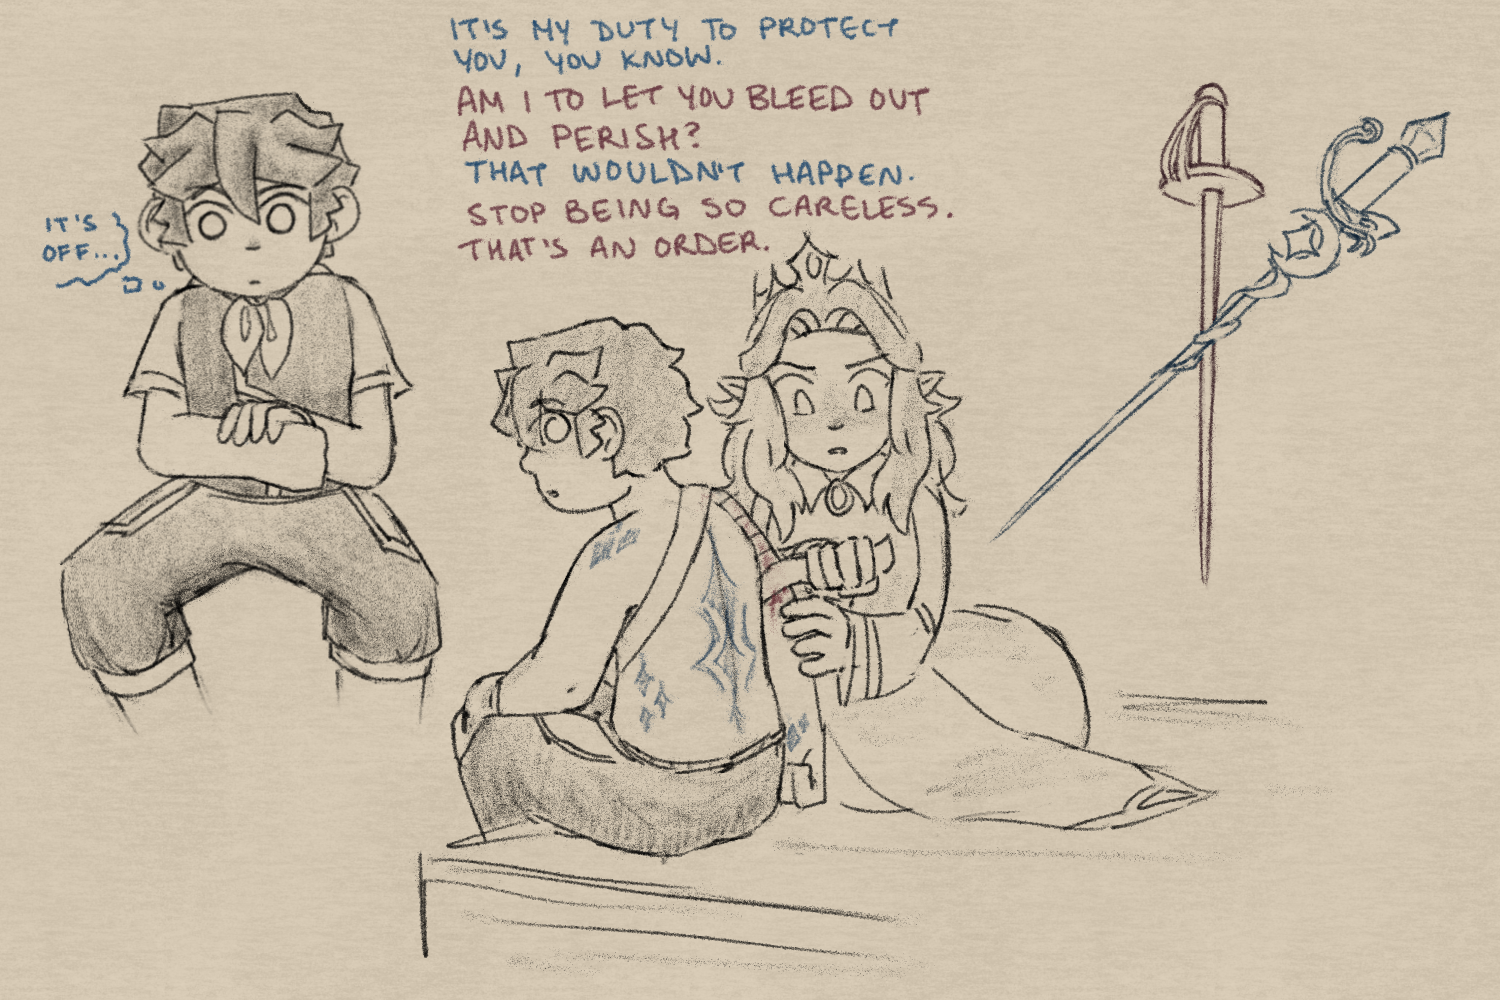 IT'S MY DUTY TO PROTECT
YOU, YOU KNOW.
AM I TO LET YOU BLEED OUT
AND PERISH?
THAT WOULDN'T HAPPEN.
STOP BEING SO CARELESS.
THAT'S AN ORDER.
IT'S
OFF...